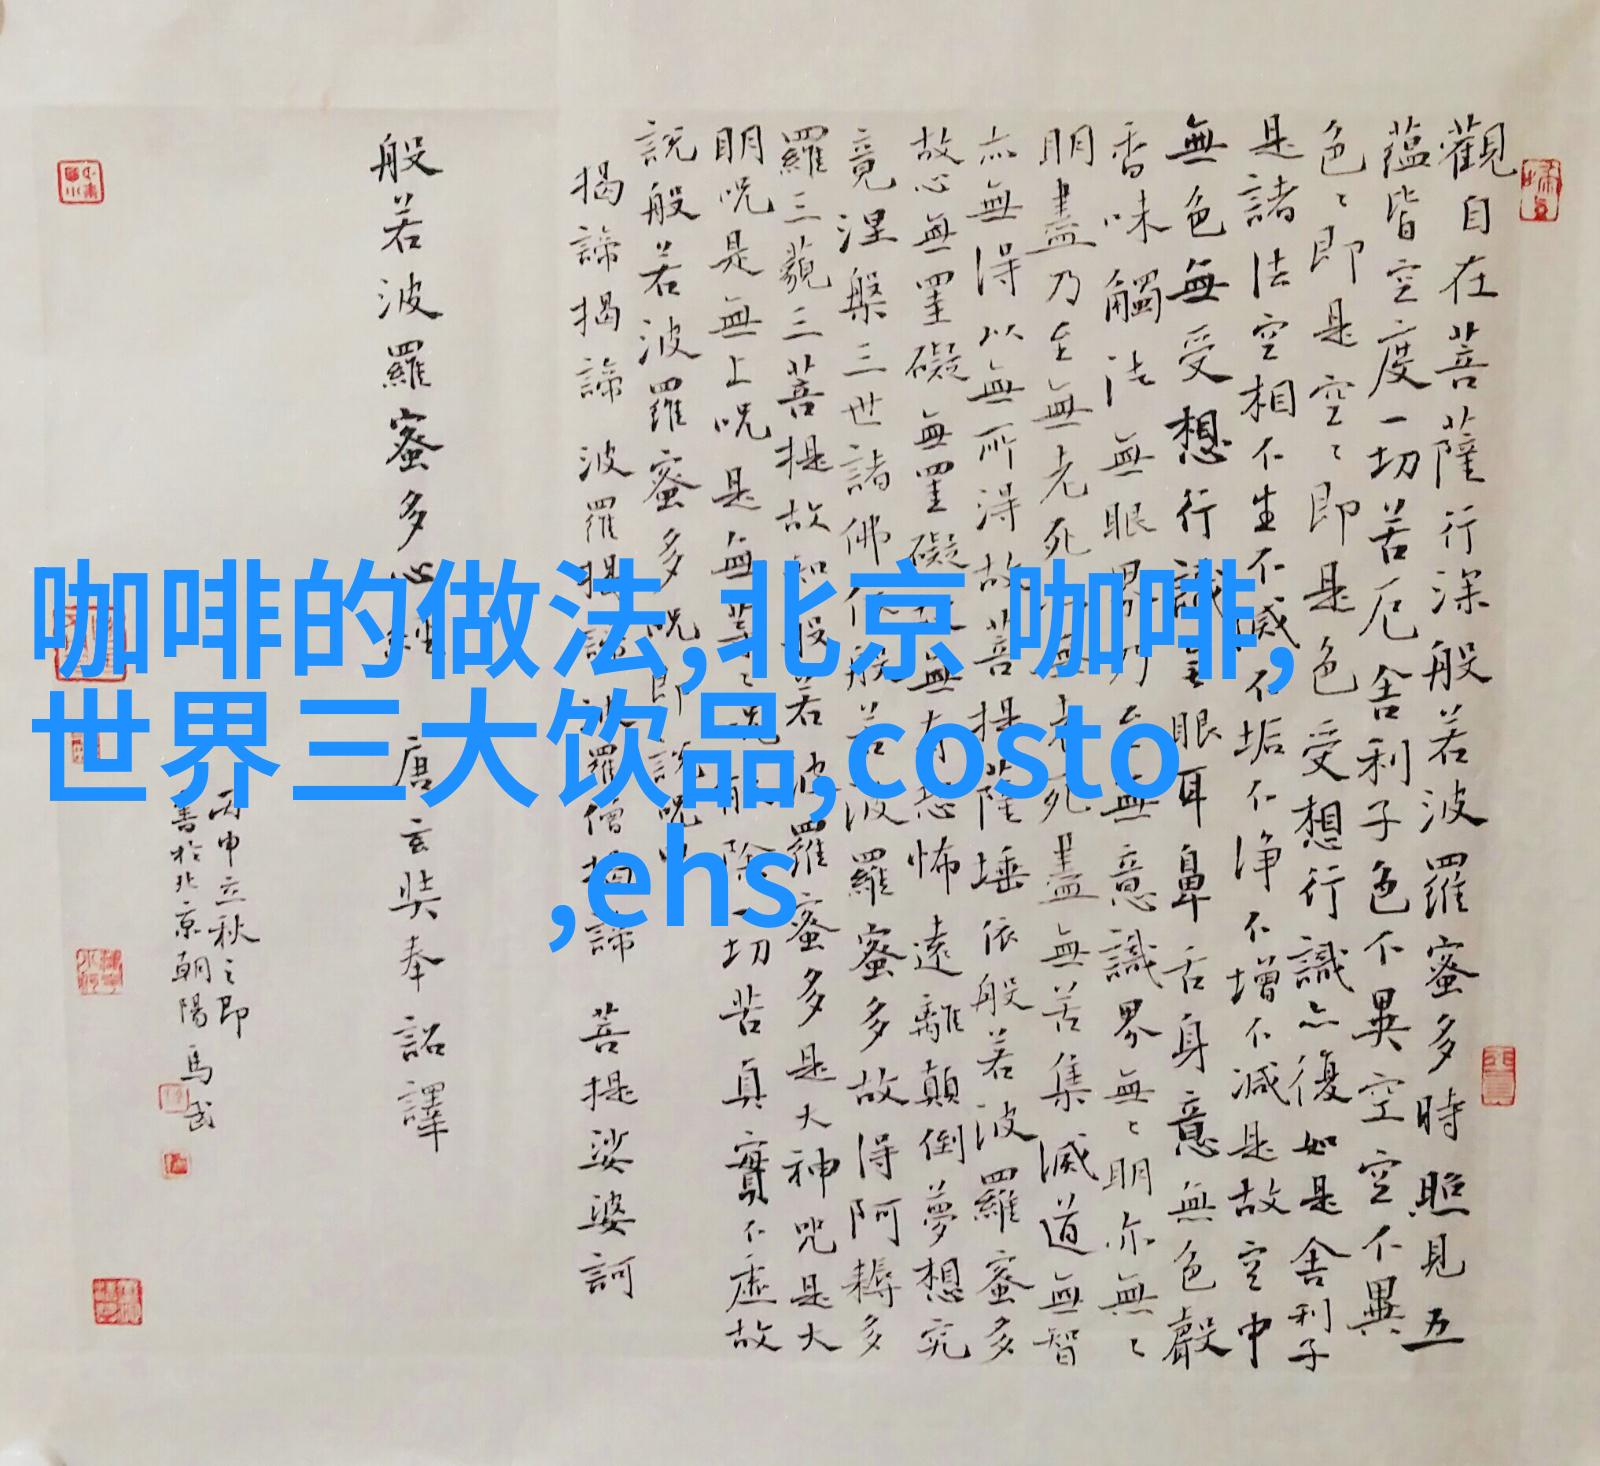 觀自在菩薩行深般若波羅蜜多時照見五
蘊皆空度一切苦厄舍利子色不異空空不異
色〻即是空〻即是色受想行識亦復如是舍利子
是諸法空相不生不滅不垢不净不增不減是故空中
無色無受想行識無眼耳鼻舌身意無色聲
香味觸法無眼界乃至無意識界無〻明亦無〻
明盡乃至無老死亦無老死盡無苦集滅道無智
亦無得以無所得故菩提薩埵依般若波羅蜜多
故心無罣礙無罣礙故無有恐怖遠離顛倒夢想究
竟涅槃三世諸佛依般若波羅蜜多故得阿耨多
羅三藐三菩提故知般若波羅蜜多是大神咒是大
明咒是無上咒是無等〻咒能除一切苦真實不虛故
説般若波羅蜜多咒即説咒曰
揭諦揭諦 波羅揭諦 波羅僧揭諦 菩提娑婆訶
般若波羅蜜多心經 唐玄奘奉詔譯
丙申立秋之即
書於北京朝陽 馬
咖啡的做法,北京 咖啡,
世界三大饮品,costo
,ehs